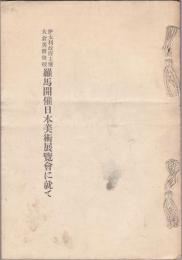 伊太利政府主催
大倉男爵後援
羅馬開催日本美術展覽會に就て